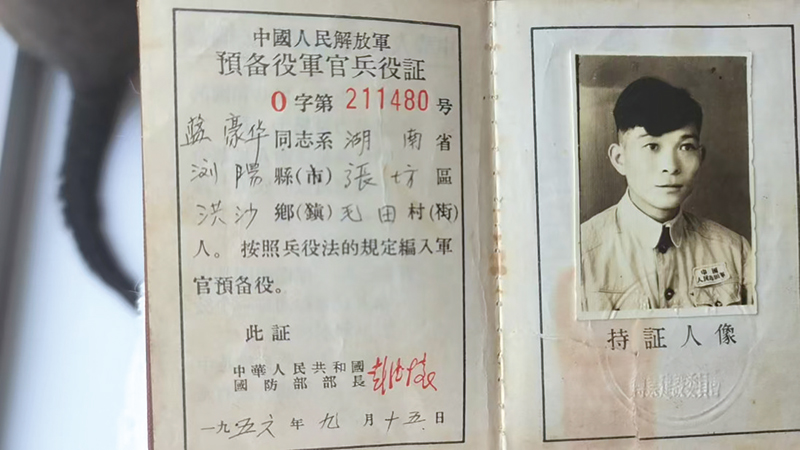 中國人民解放軍
預备役軍官兵役証
0字第 211480 号
蓝豪华同志系湖南省
浏陽縣(市)張坊區
洪沙鄉(鎮)毛田村(街)
人。按照兵役法的規定編入軍
官預备役。
此証
中華人民共和國
國防部部長 彭德懷
一九五六年九月十五日
中國
人民解放軍
持証人像